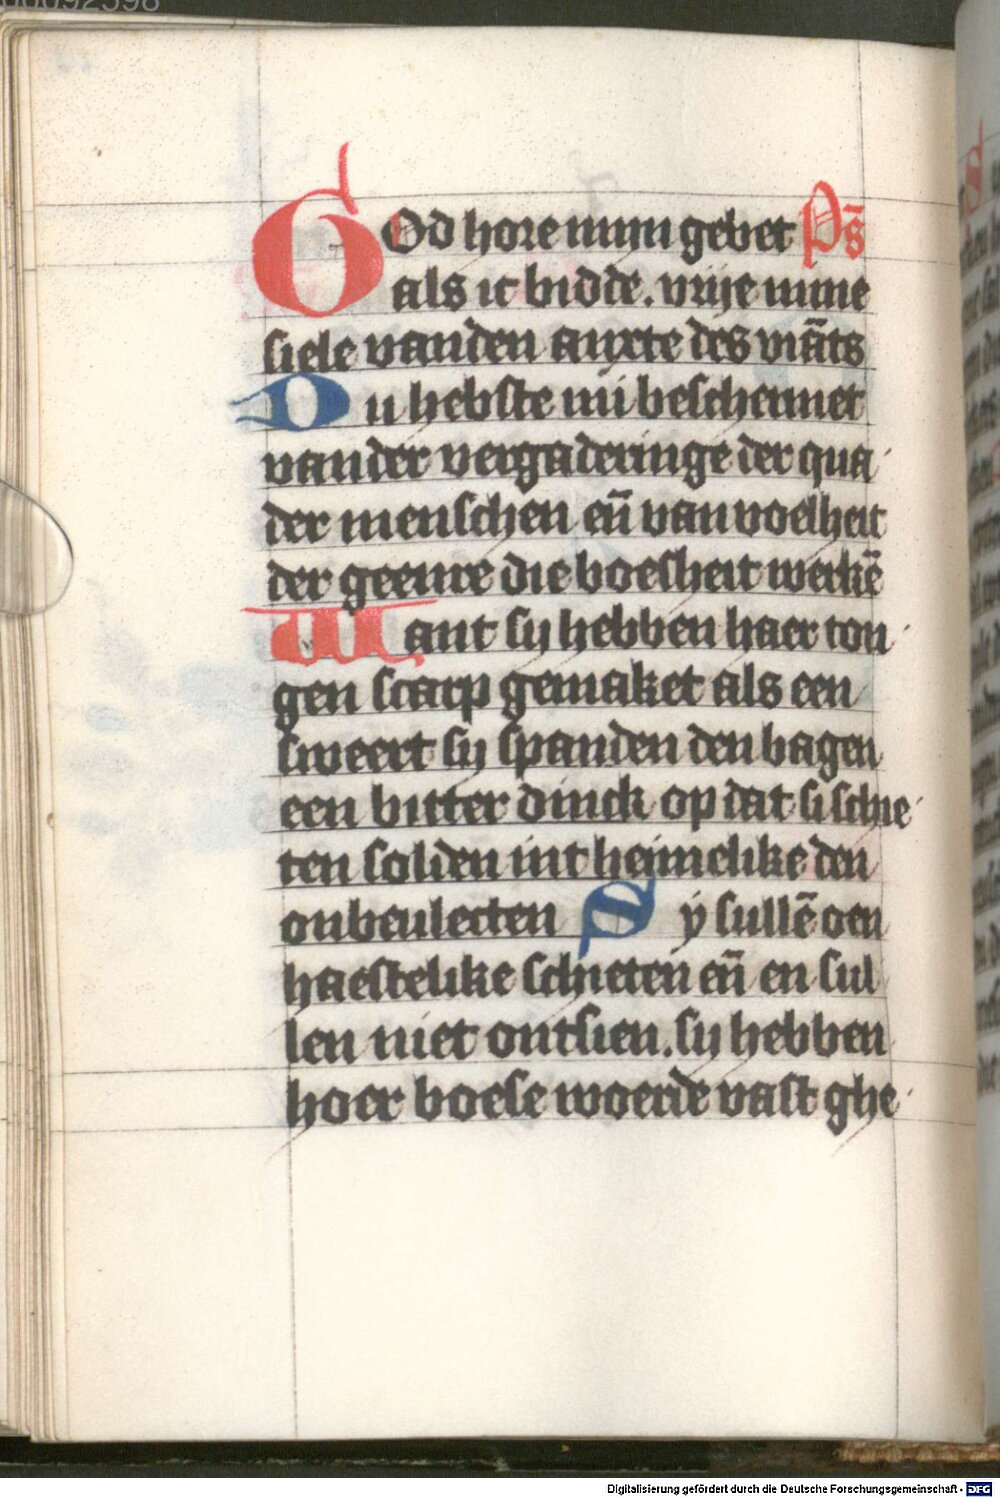 00092398
GOd hore mijn gebet Ps̄
als ic bidde. vrije mine
siele vanden anxte des viāts
Du hebste mi beschermet
vander vergaderinge der qua
der menschen eñ van voelheit
der geenre die boesheit werkē
Want sy hebben haer ton
gen scarp gemaket als een
sweert sy spanden den bagen
een bitter dinck op dat si schie
ten solden int heimelike den
onbeulecten Sy sullē oen
haestelike schieten eñ en sul
len niet ontsien. sy hebben
hoer boese woerde vast ghe
Digitalisierung gefördert durch die Deutsche Forschungsgemeinschaft - DFG